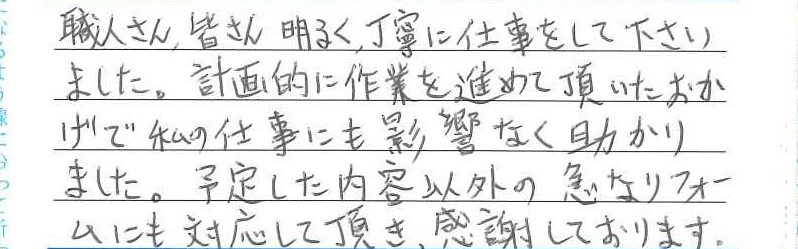 職人さん,皆さん 明るく,丁寧に仕事をして下さい
ました。計画的に作業を進めて頂いたおか
げで私の仕事にも影響なく助かり
ました。予定した内容以外の急なリフォー
ムにも対応して頂き、感謝しております。